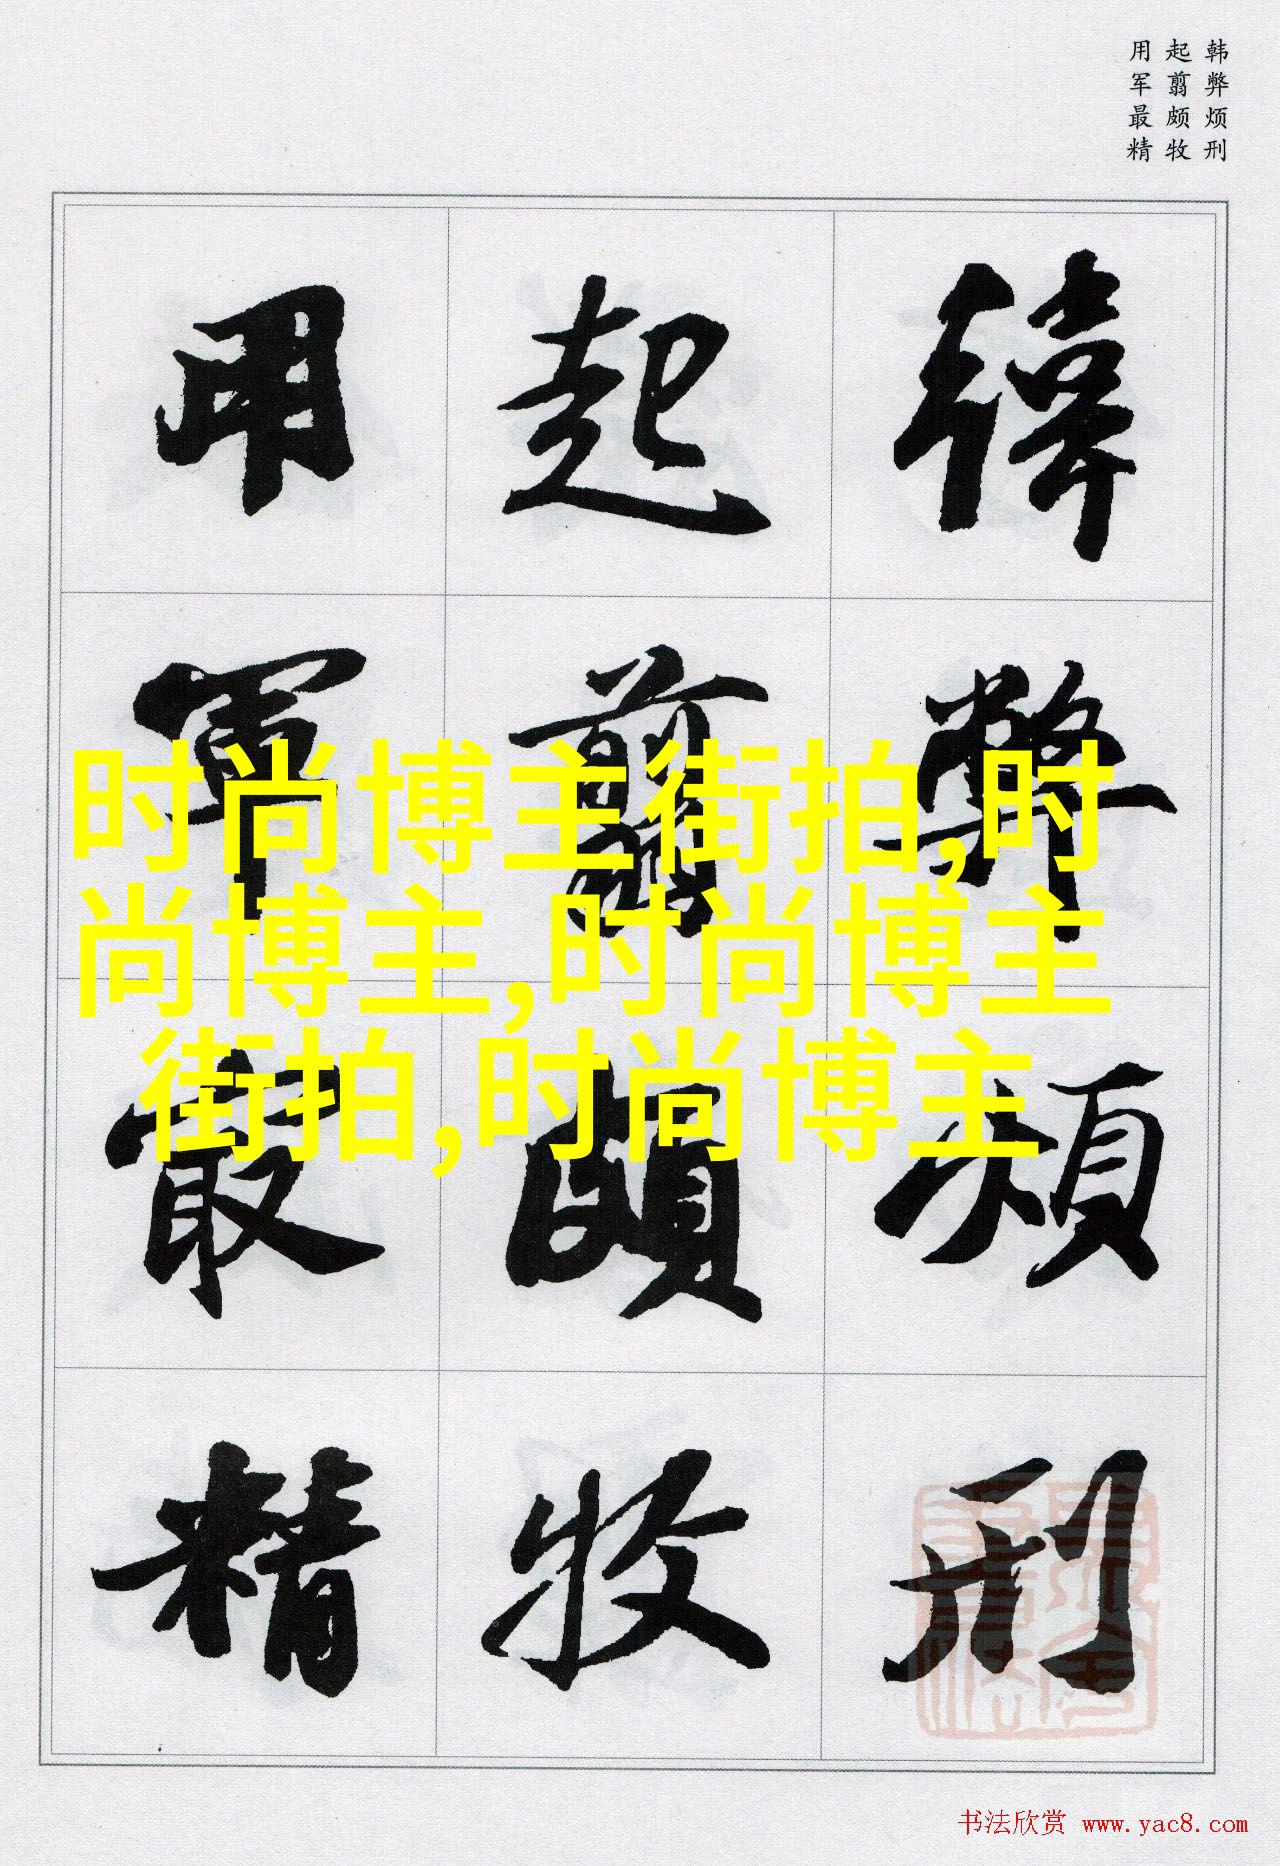 韩弊烦刑
起翦颇牧
用军最精
韓弊煩刑
起翦頗牧
用軍最精
时尚博主街拍,时
尚博主,时尚博主
街拍,时尚博主
书法欣赏 www.yac8.com